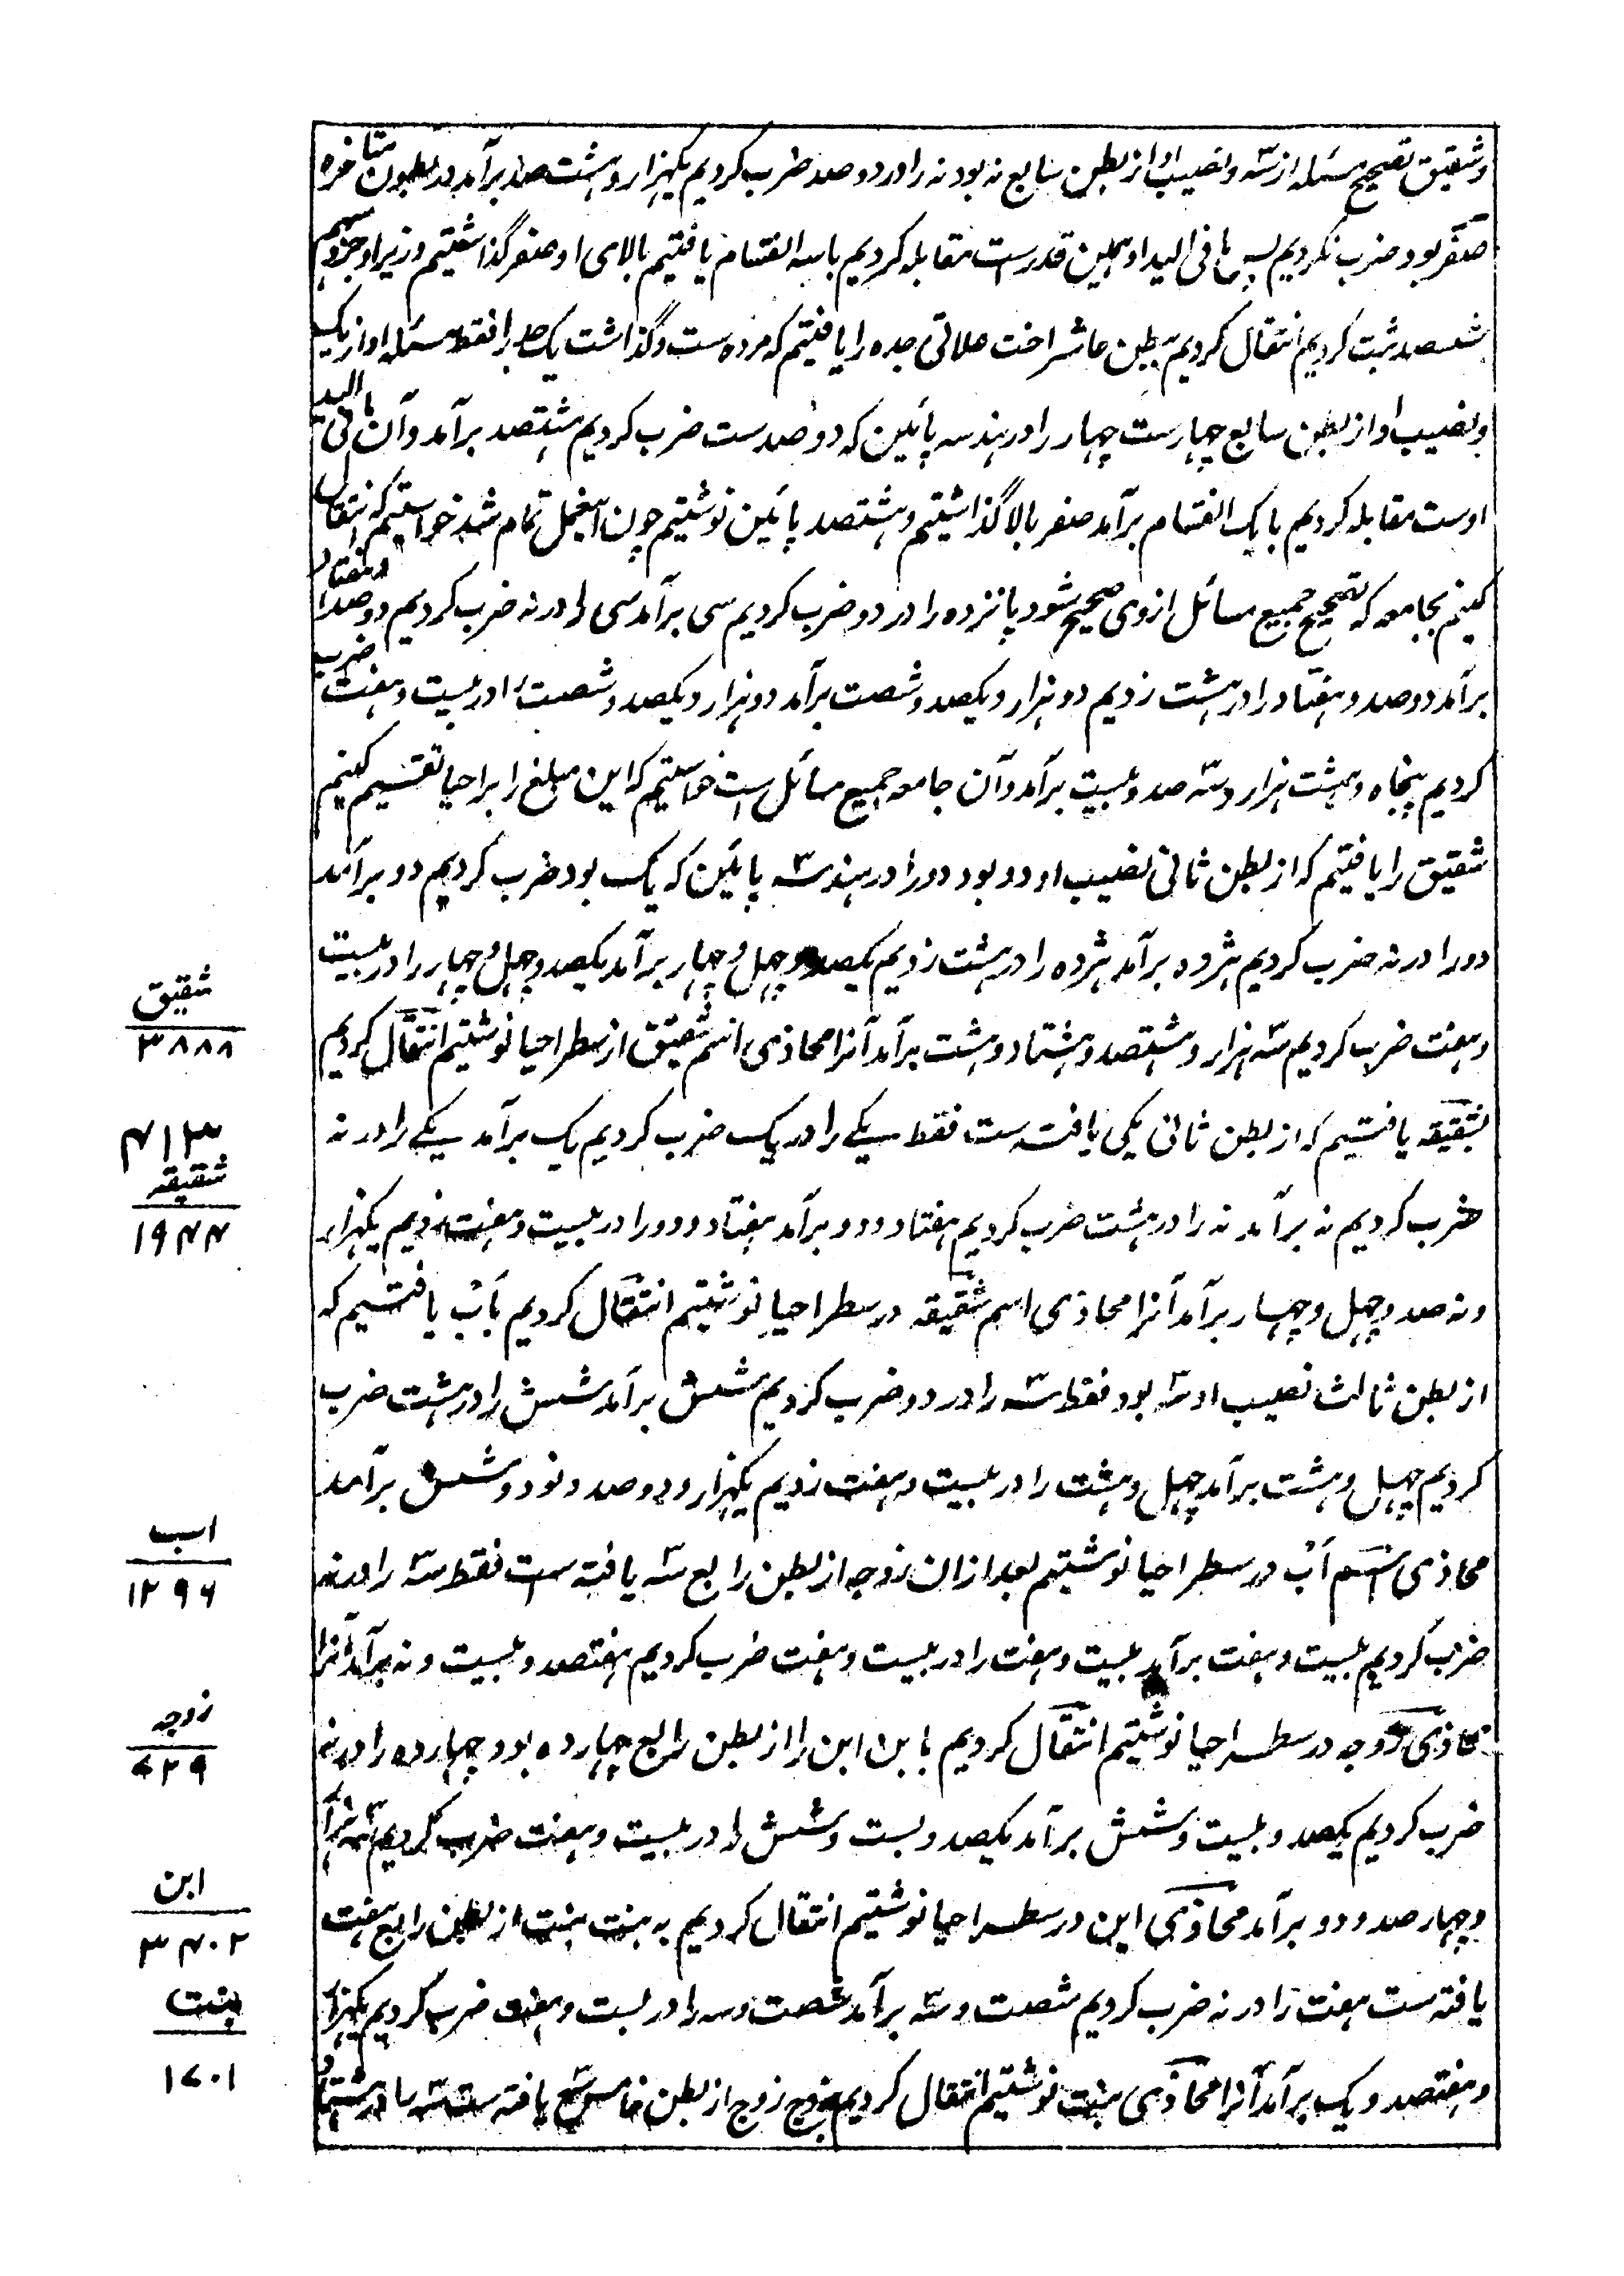 وشقیق تصحیح مسئله از سه و نصیب او از بطن سابع نه بود نه را در دو صد ضرب کردیم یکهزار و هشت صد برآمد در بطون متاخره
صفر بود ضرب نکردیم پس مافی الید او همین قدرست مقابله کردیم باسه انقسام یافتیم بالای او صفر گذاشتیم و زیر او جزو سهم
ششصد ثبت کردیم انتقال کردیم ببطن عاشر اخت علاتی جده را یافتیم که مرده ست وگذاشت یک را فقط مسئله او از یک
و نصیب او از بطن سابع چهارست چهار را در هندسه پائین که دو صد ست ضرب کردیم هشتصد برآمد وآن مافی الید
اوست مقابله کردیم با یک انقسام برآمد صفر بالا گذاشتیم و هشتصد پائین نوشتیم چون اینعمل تمام شد خواستیم که انتقال
کنیم بجامعه که تصحیح جمیع مسائل ازوی صحیح شود پانزده را در دو ضرب کردیم سی برآمد سی را در نه ضرب کردیم دو صد و هفتاد
برآمد دو صد و هفتاد را در هشت زدیم دو هزار و یکصد و شصت برآمد دو هزار و یکصد و شصت را در بیست و هفت ضرب
کردیم پنجاه و هشت هزار و سه صد و بیست برآمد وآن جامعه جمیع مسائل ست خواستیم که این مبلغ را بر احیا تقسیم کنیم
شقیق را یافتیم که از بطن ثانی نصیب او دو بود دو را در هندسه پائین که یک بود ضرب کردیم دو برآمد
دو را در نه ضرب کردیم هژده برآمد هژده را در هشت زدیم یکصد و چهل و چهار برآمد یکصد و چهل و چهار را در بیست
و هفت ضرب کردیم سه هزار و هشتصد و هشتاد و هشت برآمد آنرا محاذی اسم شقیق از سطر احیا نوشتیم انتقال کردیم
بشقیقه یافتیم که از بطن ثانی یکی یافته ست فقط یکے را در یک ضرب کردیم یک برآمد یکے را در نه
ضرب کردیم نه برآمد نه را در هشت ضرب کردیم هفتاد و دو برآمد هفتاد و دو را در بیست و هفت زدیم یکهزار
و نه صد و چهل و چهار برآمد آنرا محاذی اسم شقیقه در سطر احیا نوشتیم انتقال کردیم بأب یافتیم که
از بطن ثالث نصیب او سه بود فقط سه را در دو ضرب کردیم شش برآمد شش را در هشت ضرب
کردیم چهل و هشت برآمد چهل و هشت را در بیست و هفت زدیم یکهزار و دو صد و نود و شش برآمد
محاذی اسم أب در سطر احیا نوشتیم بعد ازان زوجه از بطن رابع سه یافته ست فقط سه را در نه
ضرب کردیم بیست و هفت برآمد بیست و هفت را در بیست و هفت ضرب کردیم هفتصد و بیست و نه برآمد آنرا
محاذی زوجه در سطر احیا نوشتیم انتقال کردیم بابن ابن را از بطن رابع چهارده بود چهارده را در نه
ضرب کردیم یکصد و بیست و شش برآمد یکصد و بست و شش را در بیست و هفت ضرب کردیم سه هزار
و چهار صد و دو برآمد محاذی ابن در سطر احیا نوشتیم انتقال کردیم به بنت بنت از بطن رابع هفت
یافته ست هفت را در نه ضرب کردیم شصت و سه برآمد شصت و سه را در بست و هفت ضرب کردیم یکهزار
و هفتصد و یک برآمد آنرا محاذی بنت نوشتیم انتقال کردیم بزوج زوج از بطن خامس سه یافته ست سه را در هشتاد
شقیق
۳۸۸۸
۴۱۳
شقیقه
۱۹۴۴
اب
۱۲۹۶
زوجه
۷۲۹
ابن
۳۴۰۲
بنت
۱۷۰۱